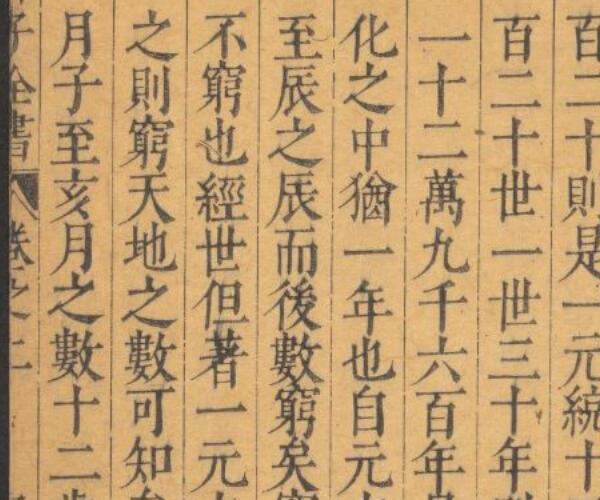 百二十則是一元統十
百二十世一世三十年
一十二萬九千六百年
化之中猶一年也自元
至辰之辰而後數窮矣
不窮也經世但著一元
之則窮天地之數可知
月子至亥月之數十二
子全書 卷之二